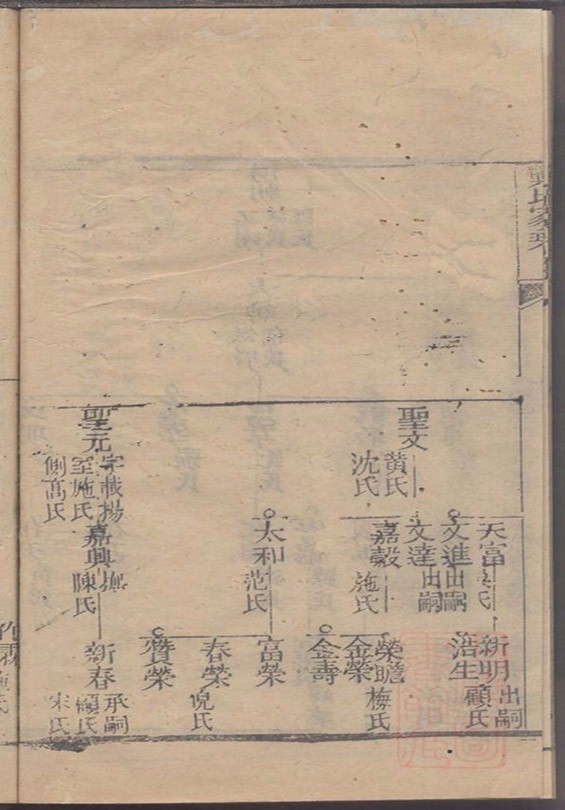 聖文
黄氏
沈氏
聖元
字載揚
室施氏
側高氏
天富
文進
出嗣
文達
出嗣
嘉穀
施氏
太和
范氏
嘉興
陳氏
新明
出嗣
顧氏
浩生
榮瞻
梅氏
金榮
金壽
富榮
春榮
倪氏
贊榮
新春
承嗣
顧氏
宋氏